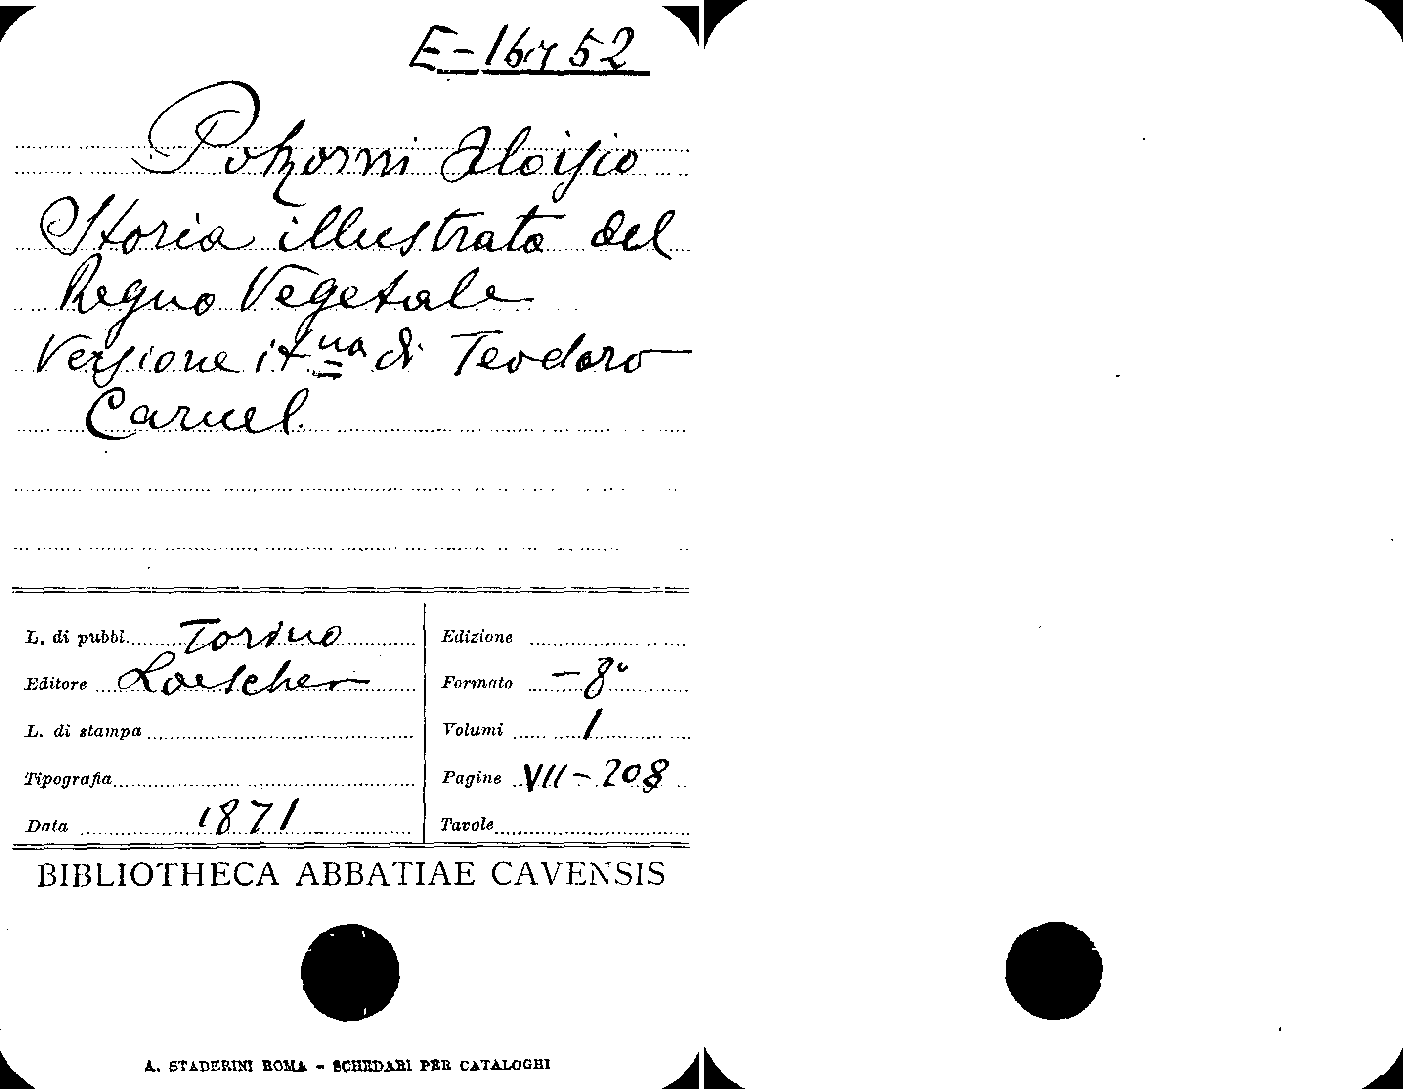 E-16752
Pokorni Aloisio
Storia illustrata del
Regno Vegetale
Versione it.na di Teodoro
Caruel.
L. di pubbl. Torino
Edizione
Editore Loescher
Formato -8°
L. di stampa
Volumi 1
Tipografia
Pagine VII-208
Data 1871
Tavole
BIBLIOTHECA ABBATIAE CAVENSIS
A. STADERINI ROMA - SCHEDARI PER CATALOGHI